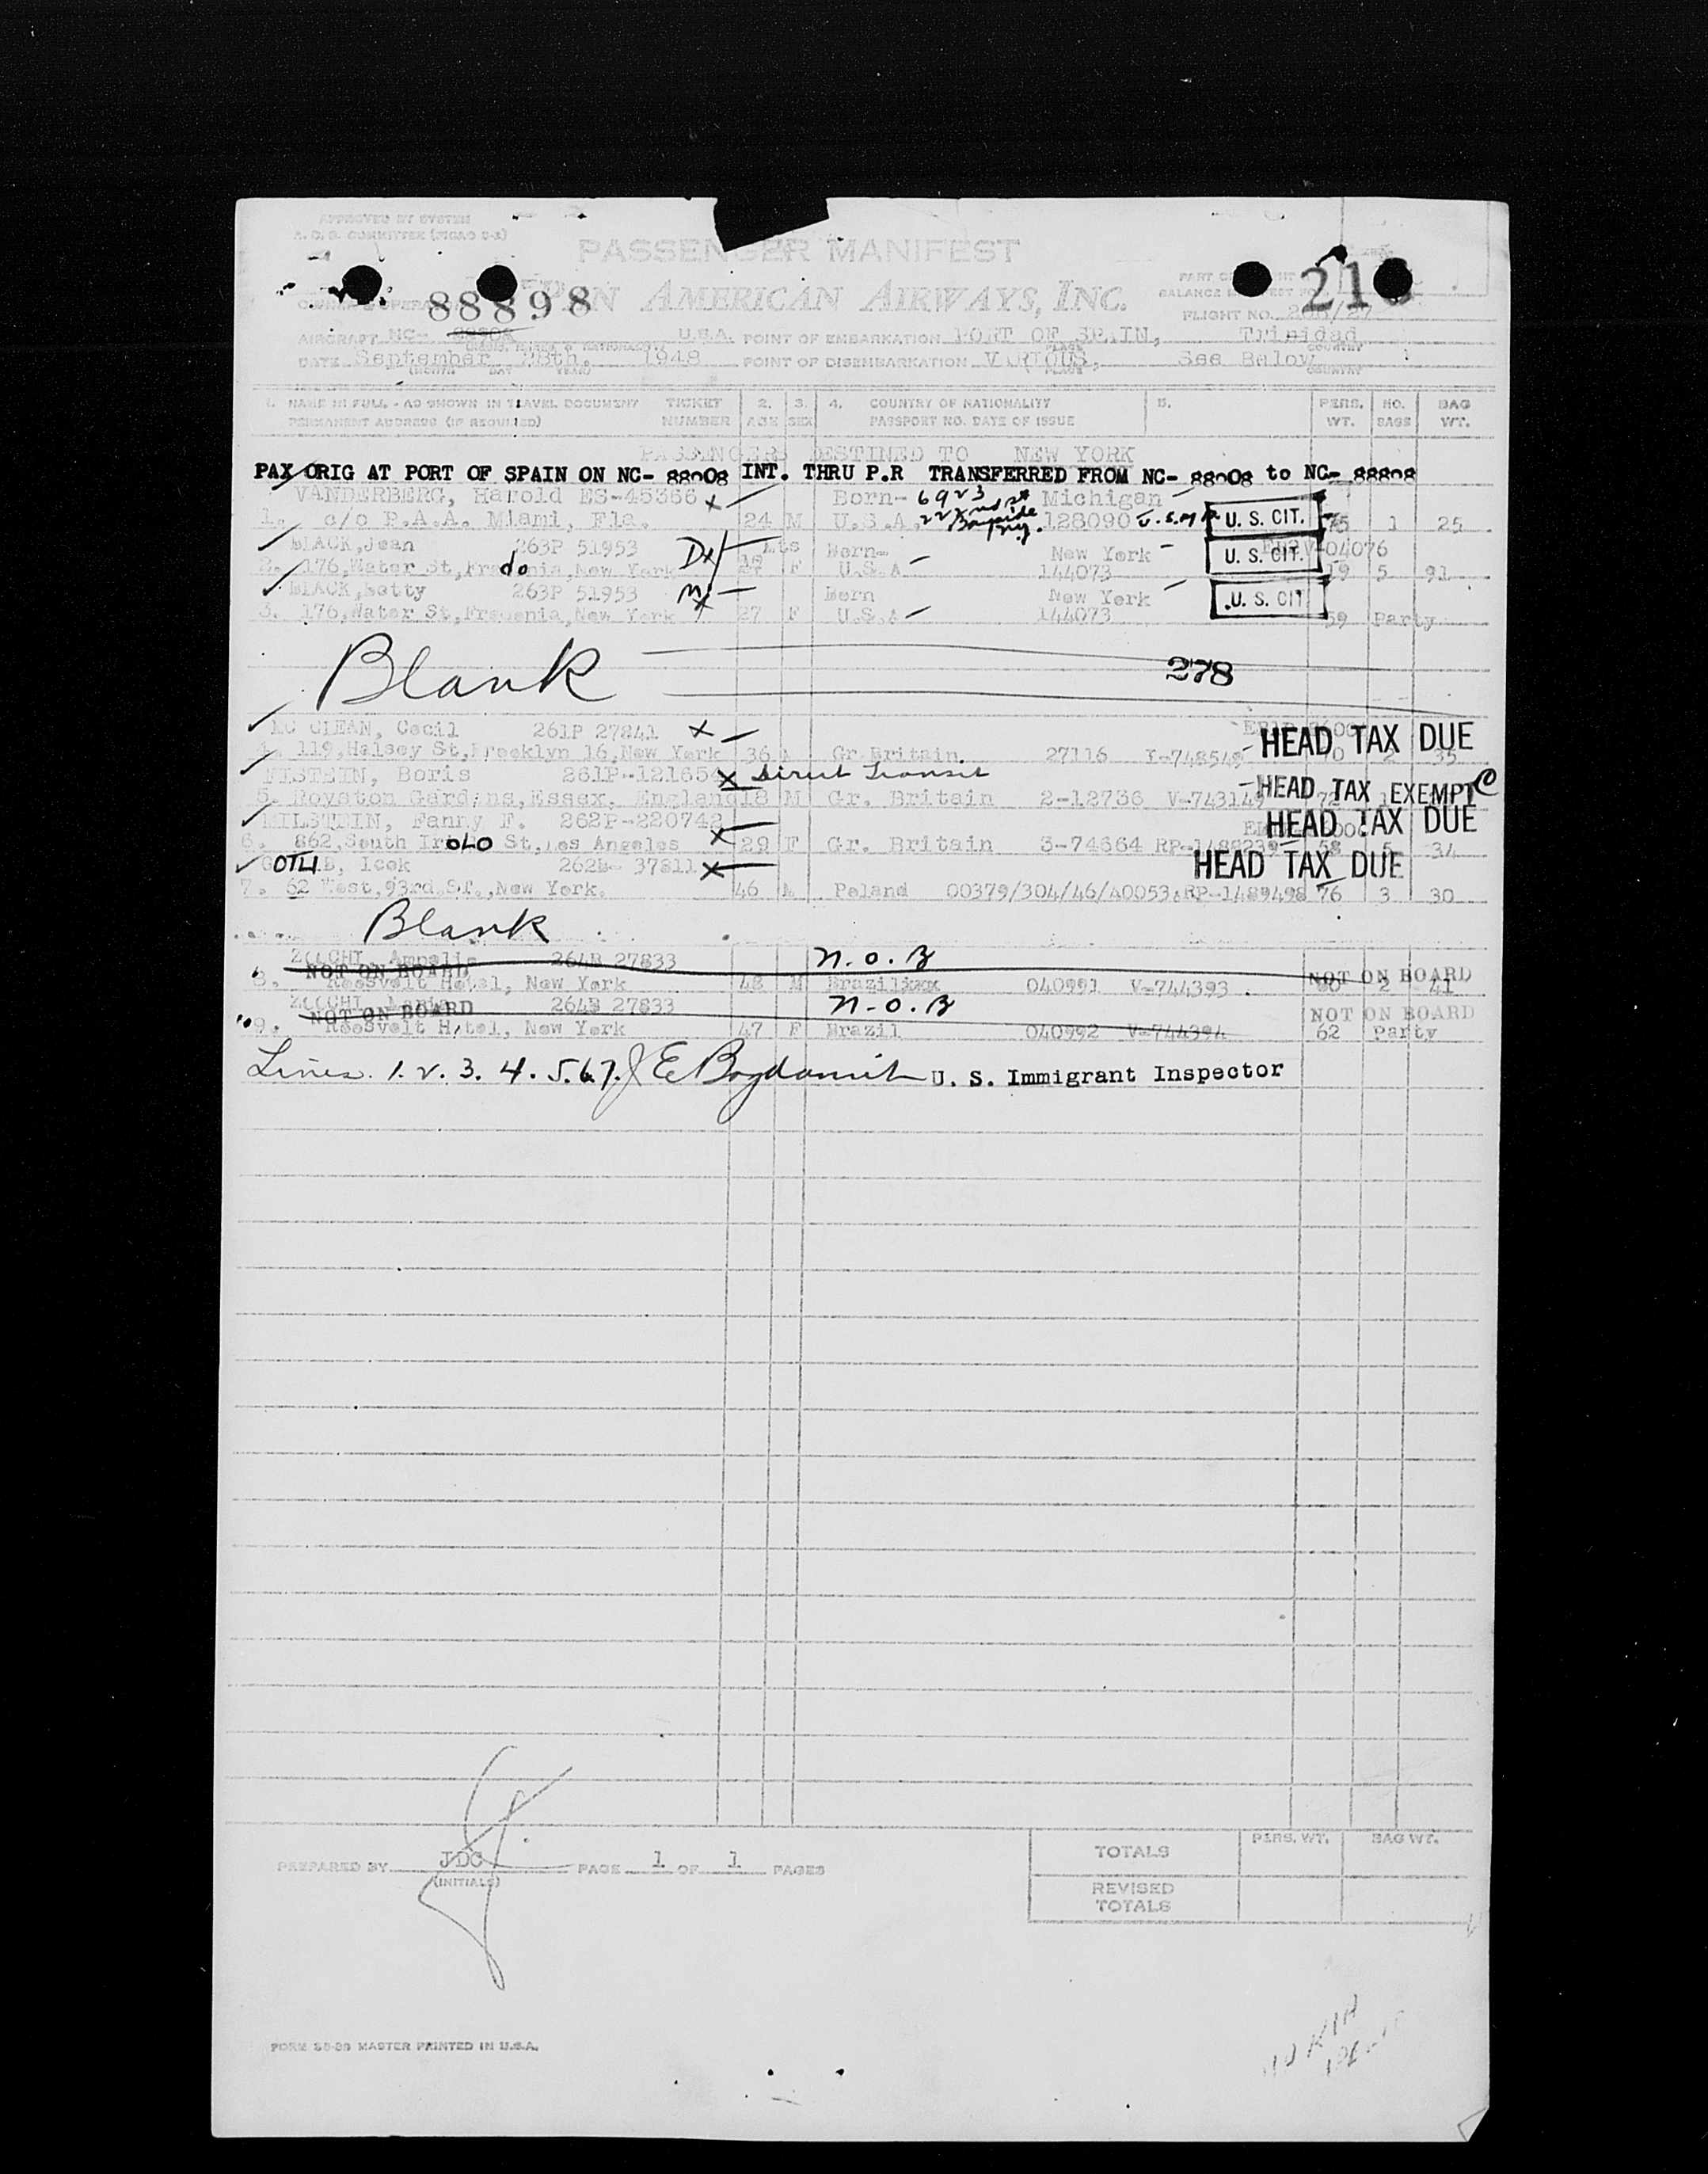 APPROVED BY SYSTEM
A.C.G. COMMITTEE (PICAO 2-A)
PASSENGER MANIFEST
PAN AMERICAN AIRWAYS, INC.
88898
FLIGHT NO.
AIRCRAFT NC- U.S.A. POINT OF EMBARKATION PORT OF SPAIN, Trinidad
DATE September 28th. 1948 POINT OF DISEMBARKATION VARIOUS, See Below
(MONTH DAY YEAR) PLACE COUNTRY
1. NAME IN FULL - AS SHOWN IN TRAVEL DOCUMENT TICKET 2. 3. 4. COUNTRY OF NATIONALITY 5. PERS. NO. BAG
PERMANENT ADDRESS (IF REQUIRED) NUMBER AGE SEX PASSPORT NO. DATE OF ISSUE WT. BAGS WT.
PASSENGERS DESTINED TO NEW YORK
PAX ORIG AT PORT OF SPAIN ON NC- 88908 INT. THRU P.R TRANSFERRED FROM NC- 88908 to NC- 88898
VANDERBERG, Harold ES-45366 x Born- 6923 Michigan
1. c/o P.A.A. Miami, Fla. 24 M U.S.A. 128090 U. S. CIT. 75 1 25
BLACK,Jean 263P 51953 Born- New York
2. 176,Water St, do New York F U.S.A 144073 U. S. CIT. 5 91
BLACK,Betty 263P 51953 Born New York
3. 176,Water St, New York 27 F U.S.A 144073 U. S. CIT 59 Party
Blank 278
MC CLEAN, Cecil 261P 27841 x
4. 119,Halsey St,Brooklyn 16,New York 36 Gr.Britain 27116 I-748549 HEAD TAX DUE 2 35
EISTEIN, Boris 261P-121654 x Direct Transit
5. Royston Gardens,Essex, England 18 M Gr. Britain 2-12736 HEAD TAX EXEMPT
MILSTEIN, Fanny F. 262P-220742 x HEAD TAX DUE
6. 862,South Irolo St,Los Angeles 29 F Gr. Britain 3-74664 58 5 34
GOTLIB, Icek 262B- 37811 x HEAD TAX DUE
7. 62 West,93rd.ST.,New York. 46 M Poland 00379/304/46/40053,RP-1489498 76 3 30
Blank
264B 27833 N.O.B
NOT ON BOARD NOT ON BOARD
8. Roosvelt Hotel, New York 48 M 040991 V-744393 2 41
264B 27833 N.O.B
NOT ON BOARD NOT ON BOARD
9. Roosvelt Hotel, New York 47 F Brazil 040992 V-744394 62 Party
Lines. 1. 2. 3. 4. 5. 6. 7. U. S. Immigrant Inspector
PREPARED BY JDC PAGE 1 OF 1 PAGES
(INITIALS)
PERS. WT. BAG WT.
TOTALS
REVISED
TOTALS
MASTER PRINTED IN U.S.A.